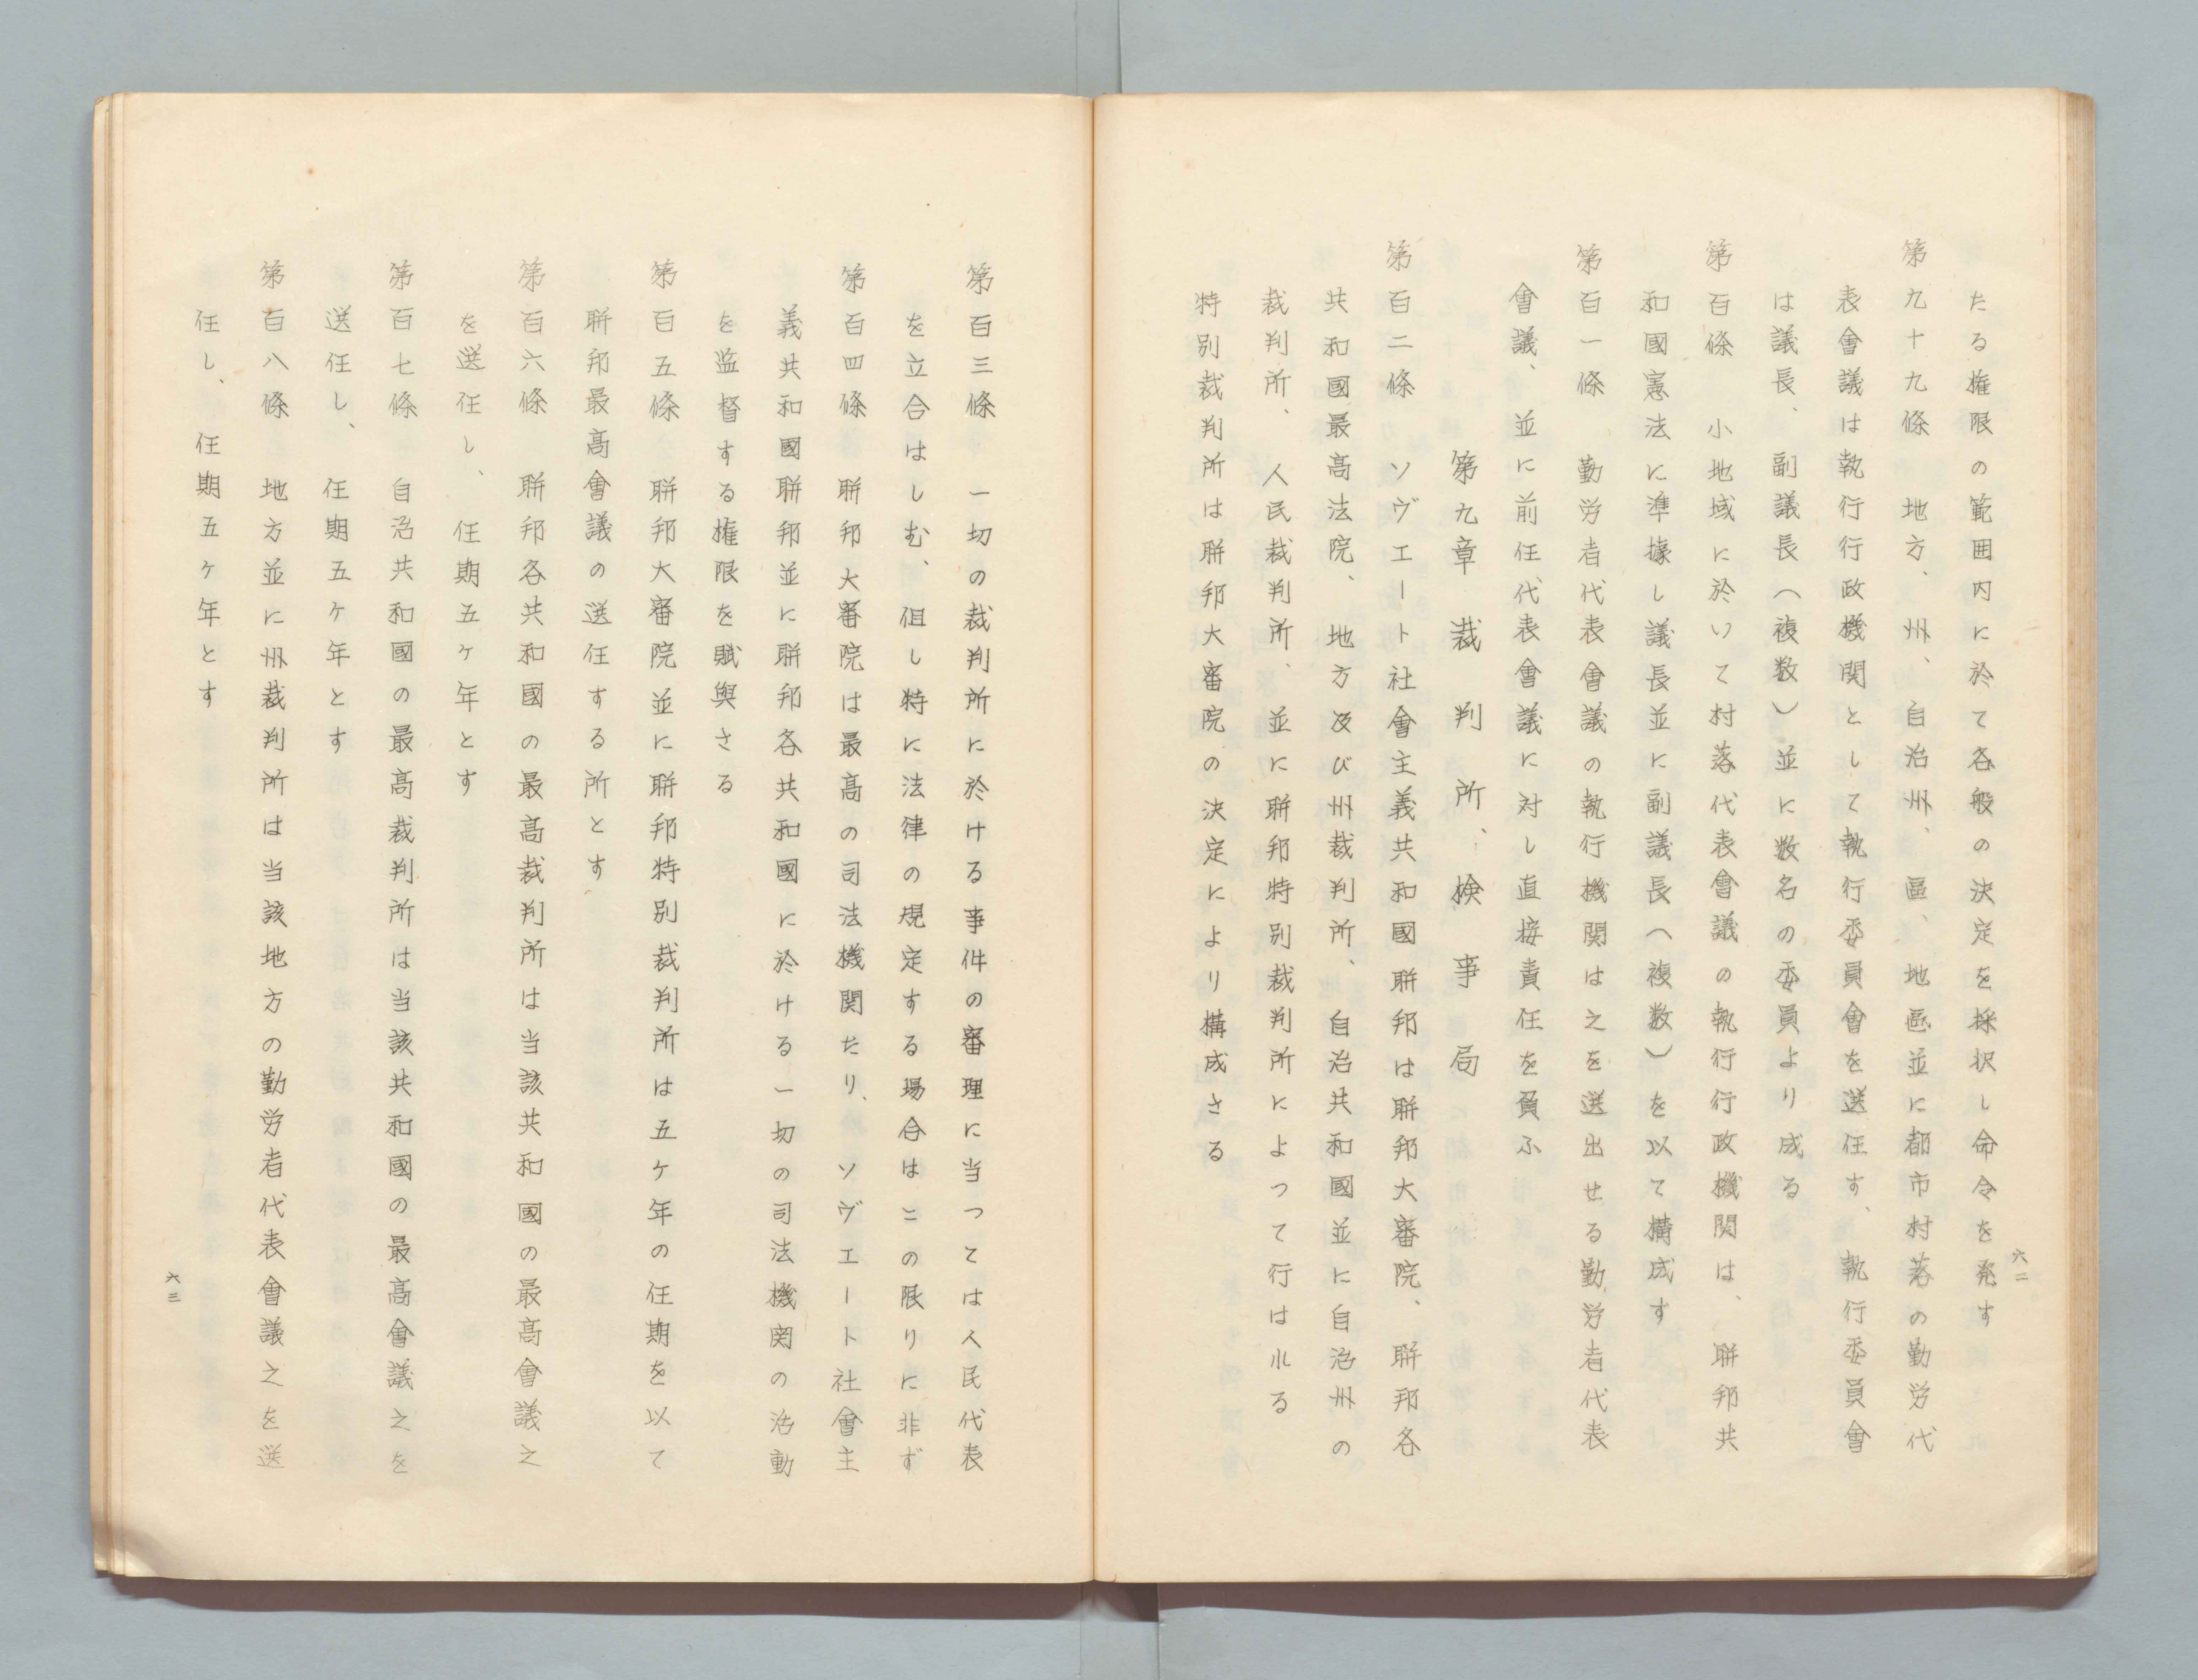 たる権限の範囲内に於て各般の決定を採択し命令を発す
第九十九條　地方、州、自治州、區、地區並に都市村落の勤労代
表會議は執行行政機関として執行委員會を選任す、執行委員會
は議長、副議長（複数）並に数名の委員より成る
第百條　小地域に於いて村落代表會議の執行行政機関は、聨邦共
和國憲法に準據し議長並に副議長（複数）を以て構成す
第百一條　勤労者代表會議の執行機関は之を選出せる勤労者代表
會議、並に前任代表會議に対し直接責任を負ふ
第九章　裁判所、検事局
第百二條　ソヴエート社會主義共和國聨邦は聨邦大審院、聨邦各
共和國最高法院、地方及び州裁判所、自治共和國並に自治州の
裁判所、人民裁判所、並に聨邦特別裁判所によつて行はれる
特別裁判所は聨邦大審院の決定により構成さる
六二
第百三條　一切の裁判所に於ける事件の審理に当つては人民代表
を立合はしむ、但し特に法律の規定する場合はこの限りに非ず
第百四條　聨邦大審院は最高の司法機関たり、ソヴエート社會主
義共和國聨邦並に聨邦各共和國に於ける一切の司法機関の活動
を監督する権限を賦與さる
第百五條　聨邦大審院並に聨邦特別裁判所は五ケ年の任期を以て
聨邦最高會議の選任する所とす
第百六條　聨邦各共和國の最高裁判所は当該共和國の最高會議之
を選任し、任期五ケ年とす
第百七條　自治共和國の最高裁判所は当該共和國の最高會議之を
選任し、任期五ケ年とす
第百八條　地方並に州裁判所は当該地方の勤労者代表會議之を選
任し、任期五ケ年とす
六三